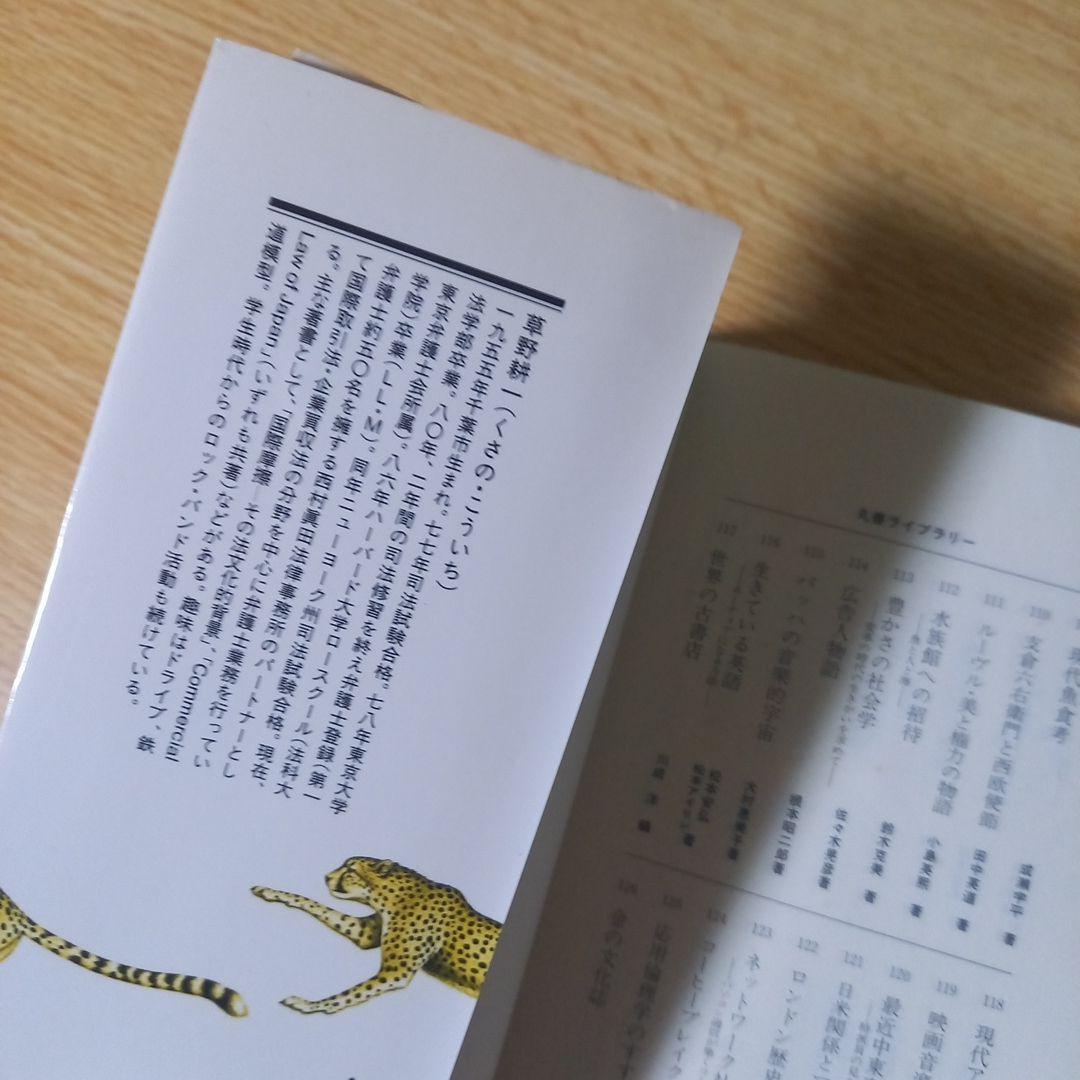 草野耕一(くさの・こういち)
一九五五年千葉市生まれ。七七年司法試験合格。七八年東京大学
法学部卒業。八〇年、二年間の司法修習を終え弁護士登録(第一
東京弁護士会所属)。八六年ハーバード大学ロースクール(法科大
学院)卒業(LL・M)。同年ニューヨーク州司法試験合格。現在、
弁護士約五〇名を擁する西村眞田法律事務所のパートナーとし
て国際取引法・企業買収法の分野を中心に弁護士業務を行ってい
る。主な著書として、「国際摩擦―その法文化的背景」、「Commercial
Law of Japan」(いずれも共著)などがある。趣味はドライブ、鉄
道模型。学生時代からのロック・バンド活動も続けている。
丸善ライブラリー
現代魚食考
成瀬宇平 著
110
支倉六右衛門と西欧使節
田中英道 著
111
ルーヴル・美と権力の物語
小島英煕 著
112
水族館への招待
鈴木克美 著
113
豊かさの社会学
佐々木晃彦著
114
広告人物語
根本昭二郎著
115
バッハの音楽的宇宙
大村恵美子著
116
生きている英語
松本安弘
松本アイリン著
117
世界の古書店
川成 洋 編
118
現代ア
119
映画音楽
120
最近中東
121
日米関係と
122
ロンドン歴史
123
ネットワーク社
124
コーヒーブレイク
125
応用倫理学のす
126
金の文化誌